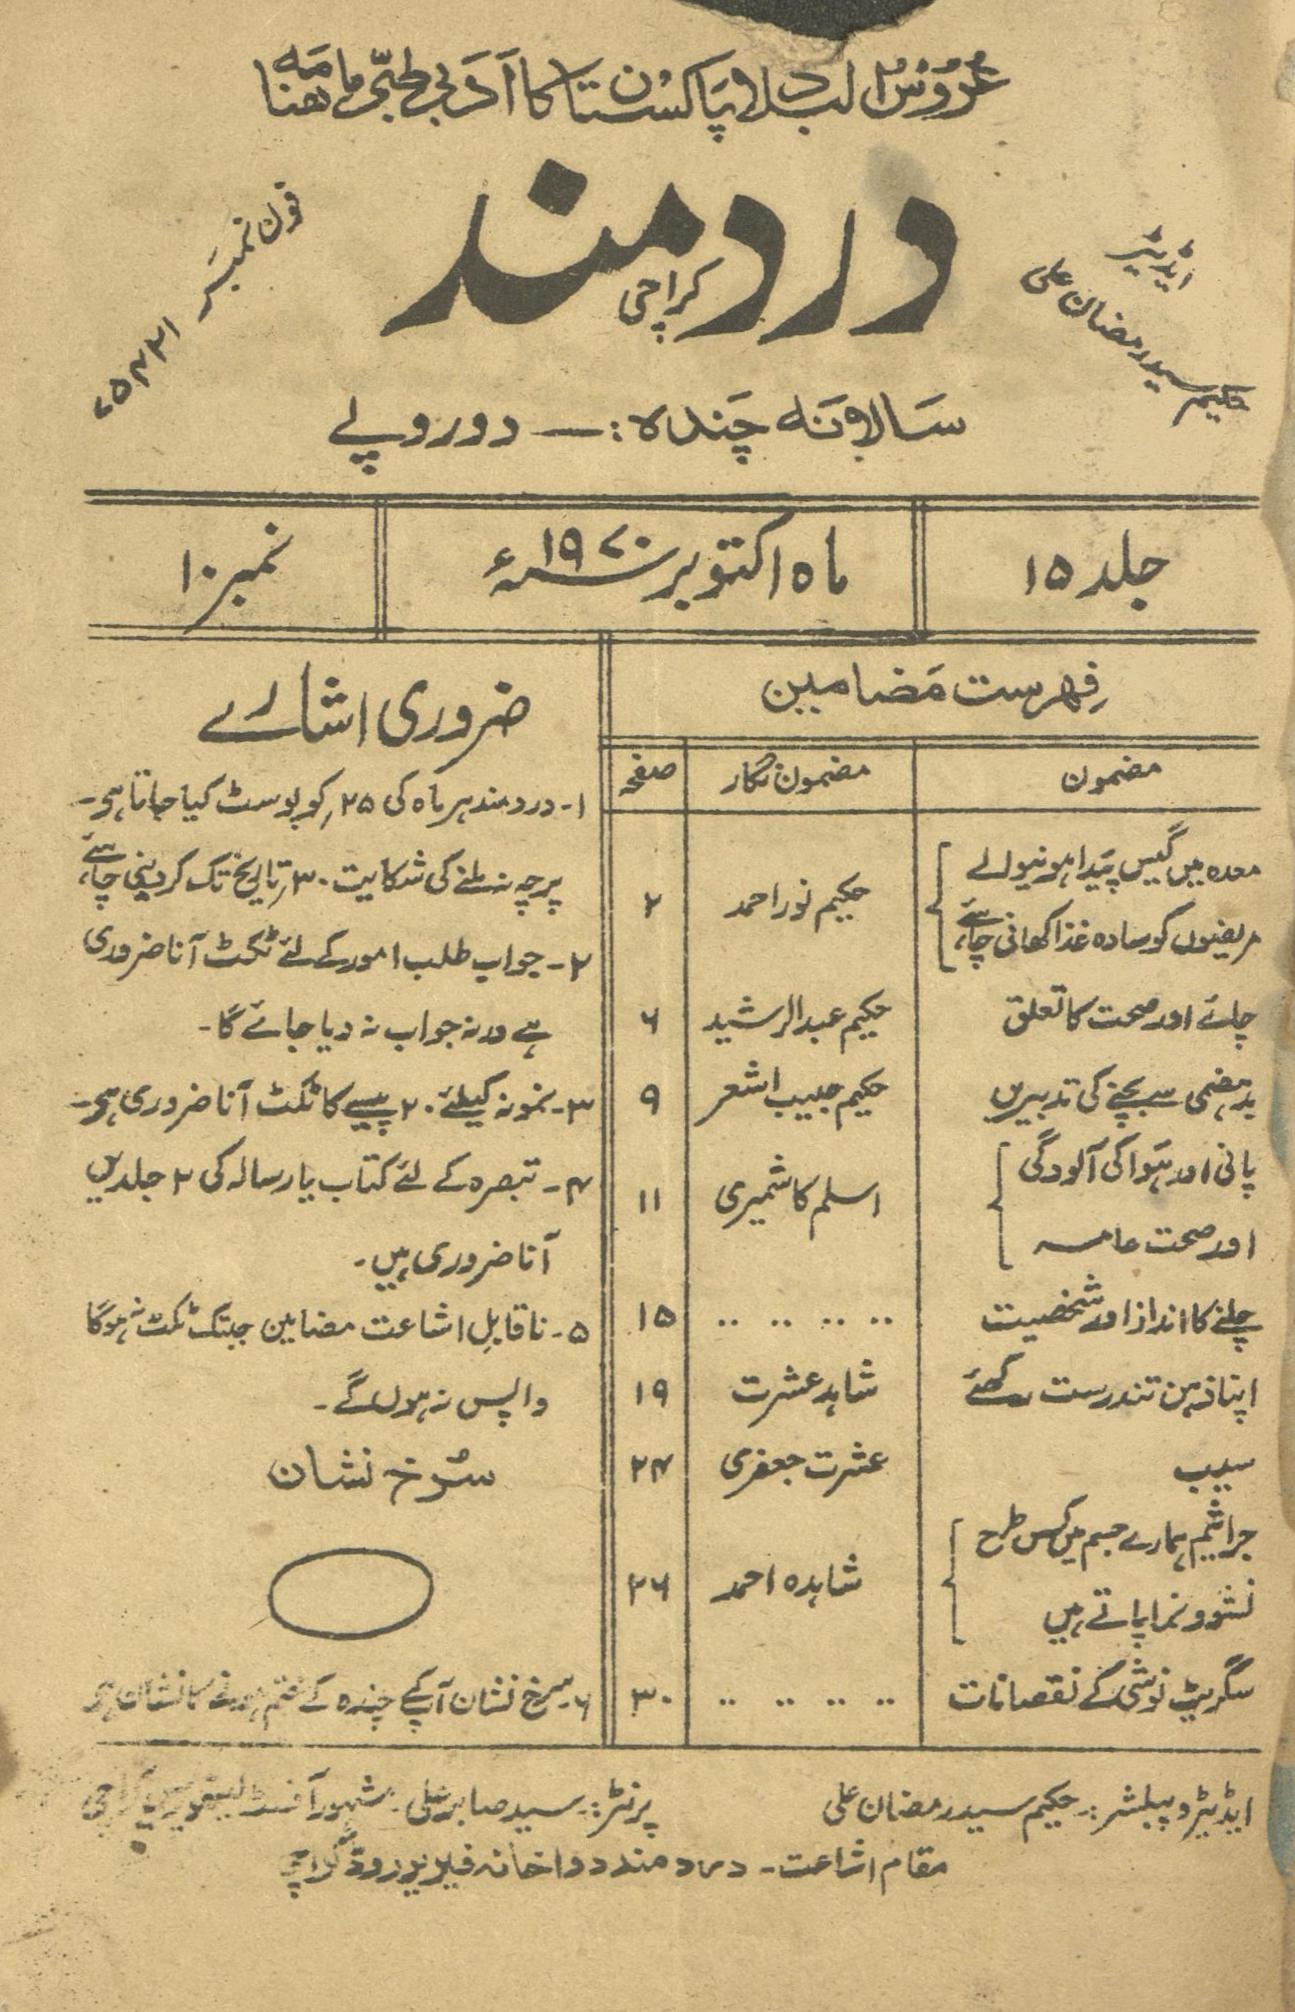 عُرُوسُ البلاد پاکستان کا اَدَبی طبّی ماھنامَہ
دردمند
کراچی
ایڈیٹر
حکیم سیدرمضان علی
فون نمبر
سَالانَہ چَندہ :— دوروپے
جلد ۱۵
ماہ اکتوبر ۱۹۷۰ء
نمبر ۱۰
فِہرست مَضامین
مضمون
مضمون نگار
صفحہ
معدہ میں گیس پَیدا ہونیوالے
مریضوں کو سادہ غذا کھانی چاہئے
حکیم نور احمد
۲
چائے اور صحت کا تعلق
حکیم عبدالرشید
۶
بدہضمی سے بچنے کی تدبیریں
حکیم حبیب اشعر
۹
پانی اور ہَوا کی آلودگی
اور صحت عامہ
اسلم کاشمیری
۱۱
چلنے کا انداز اور شخصیت
.. .. .. ..
۱۵
اپنا ذہن تندرست رکھئے
شاہد عشرت
۱۹
سیب
عشرت جعفری
۲۴
جراثیم ہمارے جسم میں کس طرح
نشوونما پاتے ہیں
شاہدہ احمد
۲۶
سگریٹ نوشی کے نقصانات
.. .. .. ..
۳۰
ضروری اشارے
۱- دردمند ہر ماہ کی ۲۵ر کو پوسٹ کیا جاتا ہو۔
پرچہ نہ ملنے کی شکایت ۳۰ر تاریخ تک کر دینی چاہئے
۲- جواب طلب امور کے لئے ٹکٹ آنا ضروری
ہے ورنہ جواب نہ دیا جائے گا۔
۳- نمونہ کیلئے ۲۰ پیسے کا ٹکٹ آنا ضروری ہو۔
۴- تبصرہ کے لئے کتاب یا رسالہ کی ۲ جلدیں
آنا ضروری ہیں۔
۵- ناقابلِ اشاعت مضامین جبتک ٹکٹ نہ ہوگا
واپس نہ ہوں گے۔
سُرخ نشان
۶- سرخ نشان آپکے چندہ کے ختم ہونے کا نشان ہو
ایڈیٹر و پبلشر :۔ حکیم سید رمضان علی
پرنٹر :۔ سید صابر علی۔ مشہور آفسٹ لیتھو پریس کراچی
مقام اشاعت - دردمند دواخانہ فیریر روڈ کراچی